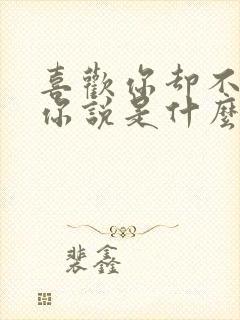 喜歡你却不
你說是什麼
裴鑫